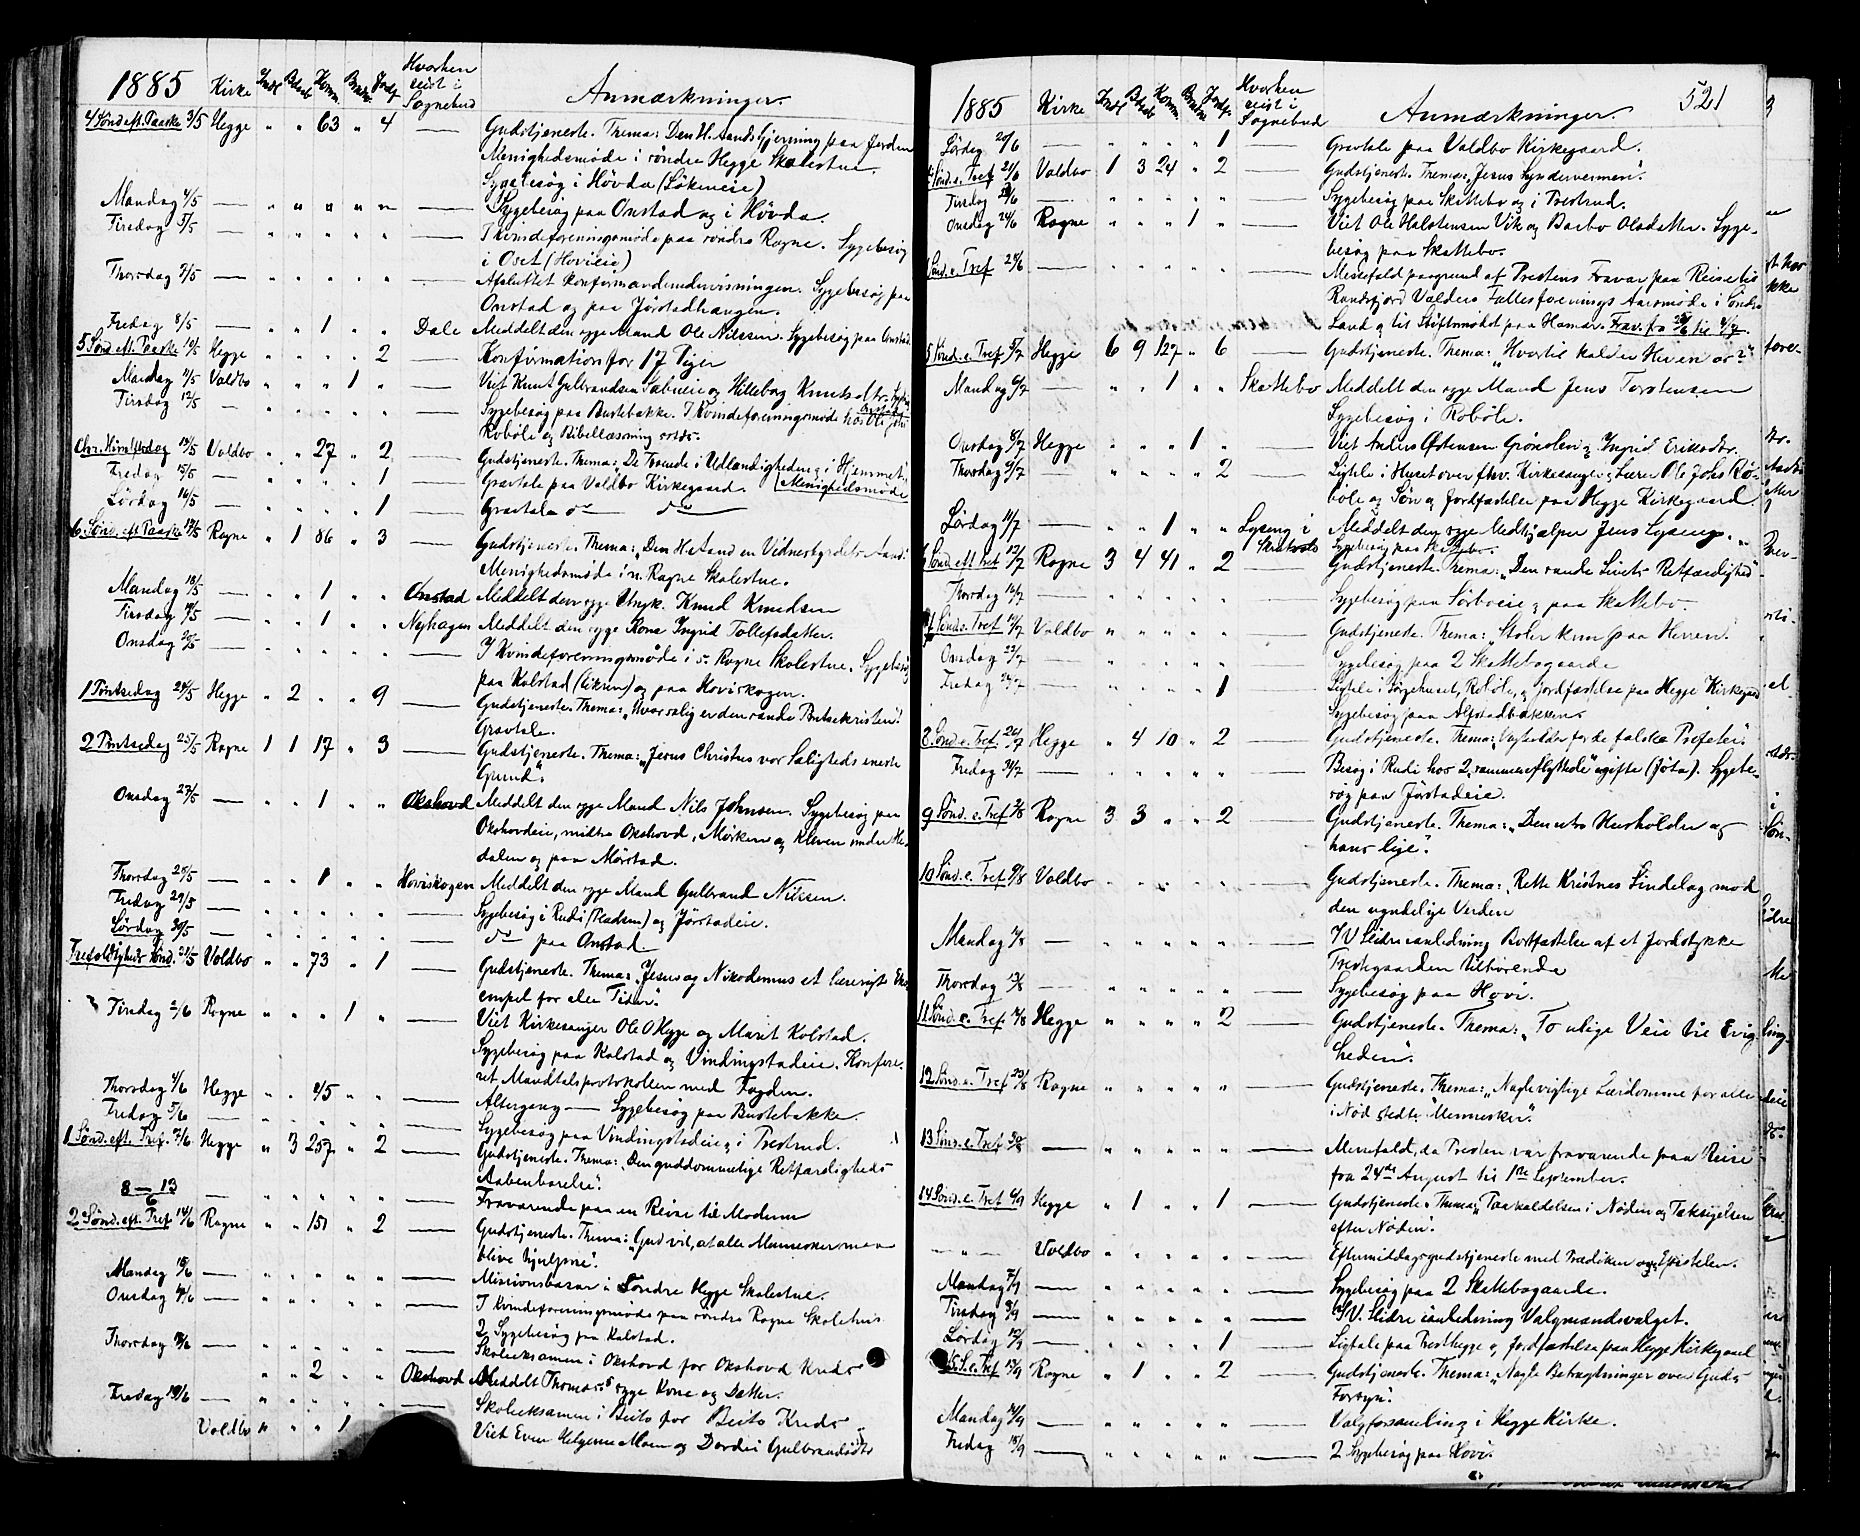 1885 Kirke Indl Komm. Jordf. Hvorhen reist i Sognebud Anmærkninger.
4 Sønd. eft. Paaske 3/5 Hegge " " 63 " 4 — Gudstjeneste. Thema: Den H. Aands Gjerning paa Jorden
Menighedsmøde i søndre Hegge Skolestue.
Sygebesøg i Høvda
Mandag 4/5 — " " " " " — Sygebesøg paa Onstad og i Høvda.
Tirsdag 5/5 — " " " " " — I Kvindeforeningsmøde paa søndre Rogne. Sygebesøg
i Oset (Hovieie)
Thorsdag 7/5 — " " " " " — Afsluttet Konfirmandundervisningen. Sygebesøg paa
Onstad og paa Jørstadhaugen.
Fredag 8/5 — " " 1 " " Dale Meddelt den syge Mand Ole Nilssen. Sygebesøg paa Onstad
5 Sønd. eft. Paaske 10/5 Hegge 2 — Konfirmation for 17 Piger
Mandag 11/5 Voldbo " " " 1 " — Viet Knut Gulbrandsen og Hilleborg Knutsdtr.
Tirsdag 12/5 — " " " " " — Sygebesøg paa Bustebakke. I Kvindeforeningsmøde hos Ole
Robøle og Bibellæsning
Chr. Himlfartsdag 14/5 Voldbo " " 27 " 2 — Gudstjeneste. Thema: De Troende i Udlændigheden og i Hjemmet.
Fredag 15/5 — " " " " 1 — Gravtale paa Voldbo Kirkegaard. Menighedsmøde
Lørdag 16/5 — " " " " 1 — Gravtale do do
6. Sønd. eft. Paaske 17/5 Rogne " 1 86 " 3 — Gudstjeneste. Thema: "Den H. Aand en Vidnesbyrdets Aand"
Menighedsmøde i n. Rogne Skolestue.
Mandag 18/5 — " " 1 " " Onstad Meddelt den syge Ungk. Knud Knudsen
Tirsdag 19/5 — " " 1 " " Nyhagen Meddelt den syge Kone Ingrid Tollefsdatter.
Onsdag 20/5 — " " " " " — I Kvindeforeningsmøde i s. Rogne Skolestue. Sygebesøg
paa Kolstad og paa Hoviskogen.
1 Pintsedag 24/5 Hegge " 2 " " 9 — Gudstjeneste. Thema: "Hvor salig er den sande Pintsekristen".
Gravtale.
2 Pintsedag 25/5 Rogne 1 1 17 " 3 — Gudstjeneste. Thema: "Jesus Christus vor Saligheds eneste
Grund".
Onsdag 27/5 — " " 1 " " Okshovd Meddelt den syge Mand Nils Johnsen. Sygebesøg paa
Okshovdeie, midtre Okshovd, Mørken og Kleven under He-
dalen og paa Mørstad.
Thorsdag 28/5 — " " 1 " " Hoviskogen Meddelt den syge Mand Gulbrand Nilssen.
Fredag 29/5 — " " " " " — Sygebesøg i Rudi (Pladsen) og Jørstadeie.
Lørdag 30/5 — " " " " " — do paa Onstad.
Trefoldigheds Sønd. 31/5 Voldbo " " 73 " 1 — Gudstjeneste. Thema: "Jesus og Nikodemus et lærerigt Ex-
empel for alle Tider".
Tirsdag 2/6 Rogne " " " 1 " — Viet Kirkesanger Ole O Hegge og Marit Kolstad.
Sygebesøg paa Kolstad og Vindingstadeie. Konfere-
ret Mandtalsprotokollen med Fogden.
Thorsdag 4/6 Hegge " " 45 " " — Altergang — Sygebesøg paa Bustebakke.
Fredag 5/6 — " " " " " — Sygebesøg paa Vindingstadeie og i Prestrud.
1 Sønd. eft. Tref. 7/6 Hegge " 3 257 " 2 — Gudstjeneste. Thema: "Den guddommelige Retfærdigheds
Aabenbarelse".
8—13/6 — " " " " " — Fraværende paa en Reise til Modum
2 Sønd. eft. Tref 14/6 Rogne " " 151 " 2 — Gudstjeneste. Thema: "Gud vil, at alle Mennesker maa
blive hjulpne".
Mandag 15/6 — " " " " " — Missionsbasar i Søndre Hegge Skolestue.
Onsdag 17/6 — " " " " " — I Kvindeforeningsmøde paa søndre Rogne Skolehus
2 Sygebesøg paa Kolstad.
Thorsdag 18/6 — " " " " " — Skoleeksamen i Okshovd for Okshovd Kreds
" " 2 " " Okshovd Meddelt Thomas's syge Kone og Datter.
Fredag 19/6 — " " " " " — Skoleeksamen i Beito for Beito Kreds
Voldbo " " " 1 Viet Even Helgesen Moen og Dordei Gulbrandsdtr
1885 Kirke Indl Komm. Jordf. Hvorhen reist i Sognebud Anmærkninger. 521
Lørdag 20/6 — " " " " 1 — Gravtale paa Voldbo Kirkegaard.
Sønd. e. Tref 21/6 Voldbo 1 3 24 " 2 — Gudstjeneste. Thema: "Jesus Syndervennen".
Tirsdag — " " " " " — Sygebesøg paa Skattebo og i Prestrud.
Onsdag 24/6 Rogne " " " 1 " — Viet Ole Halstensen Vik og Barbo Olsdatter. Syge-
besøg paa Skattebo.
Sønd. e. Tref 28/6 — " " " " " — Messefald paagrund af Prestens Fravær paa Reise til
Randsfjord Valders Fællesforenings Aarsmøde i Søndre
Land og til Stiftsmødet paa Hamar.
5 Sønd. e. Tref 5/7 Hegge 6 9 127 " 6 — Gudstjeneste. Thema: "Hvortil kalder Herren os?"
Mandag 6/7 — " " 1 " " Skattebo Meddelt den syge Mand Jens Torstensen
Sygebesøg i Robøle.
Onsdag 8/7 Hegge " " " 1 " — Viet Anders Østensen Grønolen og Ingrid Eriksdtr.
Thorsdag 9/7 — " " " " 2 — Ligtale i Huset over fhv. Kirkesanger og Lærer Ole Johs Rø-
bøle og Søn og Jordfæstelse paa Hegge Kirkegaard.
Lørdag 11/7 — " " 1 " " Lyseng i Skattebo Meddelt den syge Medhjælper Jens Lyseng.
Sygebesøg paa Skattebo.
6 Sønd. eft Tref 12/7 Rogne 3 4 41 " 2 — Gudstjeneste. Thema: "Den sande Livets Retfærdighed".
Thorsdag 16/7 — " " " " " — Sygebesøg paa Sørboeie og paa Skattebo.
Sønd. e. Tref 19/7 Voldbo " " " " " — Gudstjeneste. Thema: "Stoler kun paa Herren".
Onsdag — " " " " " — Sygebesøg paa 2 Skattebogaarde
Fredag 24/7 — " " " " 1 — Ligtale i Sørgehuset, Robøle, og Jordfæstelse paa Hegge Kirkegaard
Sygebesøg paa Alfstadbakken.
8 Sønd. e. Tref. 26/7 Hegge " 4 10 " 2 — Gudstjeneste. Thema: "Vogter Eder for de falske Profeter".
Fredag 31/7 — " " " " " — Besøg i Rudi hos 2 "sammenflyttede" ugifte (Jota). Sygebe-
søg paa Jørstadeie.
9 Sønd. e. Tref 2/8 Rogne 3 3 " " 2 — Gudstjeneste. Thema: "Den utro Husholder og
hans lige".
10 Sønd. e. Tref 9/8 Voldbo " " " " — Gudstjeneste. Thema: "Rette Kristnes Sindelag mod
den ugudelige Verden
Mandag — " " " " " — I V. Slidre i anledning Bortfæstelse af et Jordstykke
Prestegaarden tilhørende
Thorsdag 13/8 — " " " " " — Sygebesøg paa Hovi.
11 Sønd. e. Tref 16/8 Hegge " " " " 2 — Gudstjeneste. Thema: "To ulige Veie til Evig-
heden".
12 Sønd. e. Tref 23/8 Rogne " " " " " — Gudstjeneste. Thema: "Nogle vigtige Lærdomme for alle
i Nød stedte Mennesker".
13 Sønd. e. Tref 30/8 — " " " " " — Messefald, da Presten var fraværende paa Reise
fra 24de August til 1ste September.
14 Sønd. e. Tref 6/9 Hegge " 1 " " 1 — Gudstjeneste. Thema: "Paakaldelsen i Nøden og Taksigelsen
efter Nøden".
— " — Voldbo " " " " " — Eftermiddagsgudstjeneste med Prædiken over Epistelen.
Mandag 7/9 — " " " " " — Sygebesøg paa 2 Skattebogaarde.
Tirsdag 8/9 — " " " " " — I V. Slidre i anledning Valgmandsvalget.
Lørdag 12/9 — " " " " 1 — Ligtale paa Presthegge og Jordfæstelse paa Hegge Kirkegaard
15. S. e. Tref 13/9 Rogne " 1 " " 2 — Gudstjeneste. Thema: "Nogle Betragtninger over Guds
Forsyn".
Mandag 14/9 — " " " " " — Valgforsamling i Hegge Kirke.
Fredag 18/9 — " " " " " — 2 Sygebesøg paa Hovi.